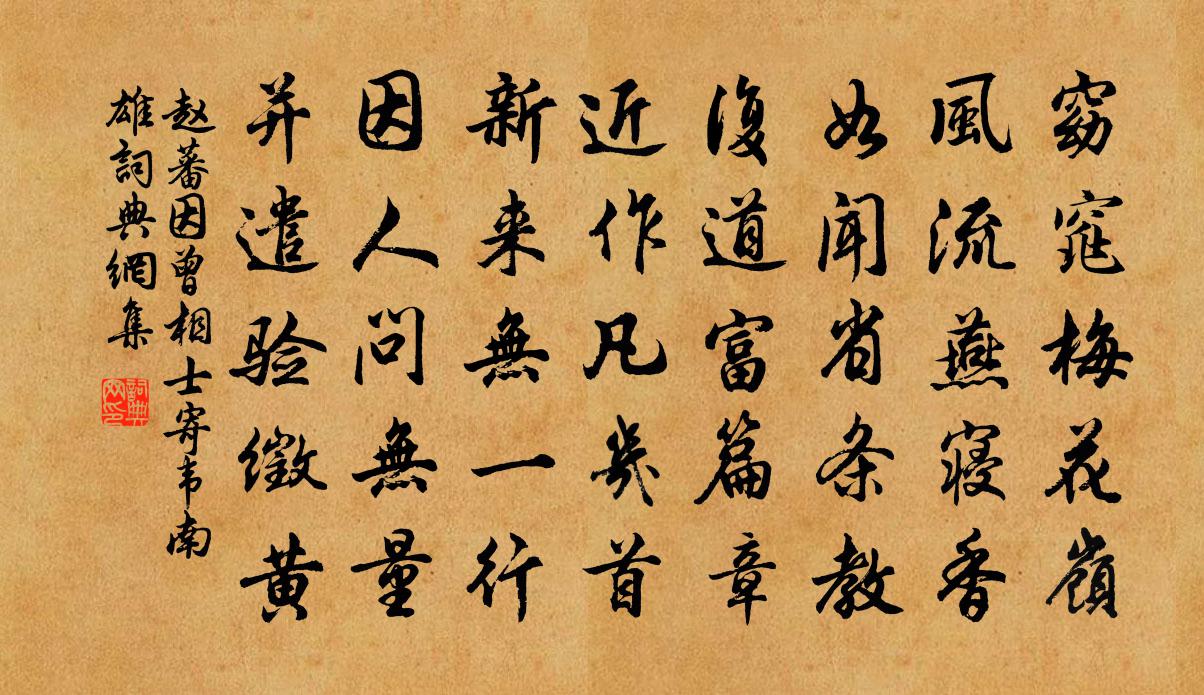 窈窕梅花嶺
風流燕寢香
如聞省条教
復道富篇章
近作凡幾首
新来無一行
因人問無量
并遣验徵黄
赵蕃因曾相士寄韦南
雄詞典網集
詞典網印